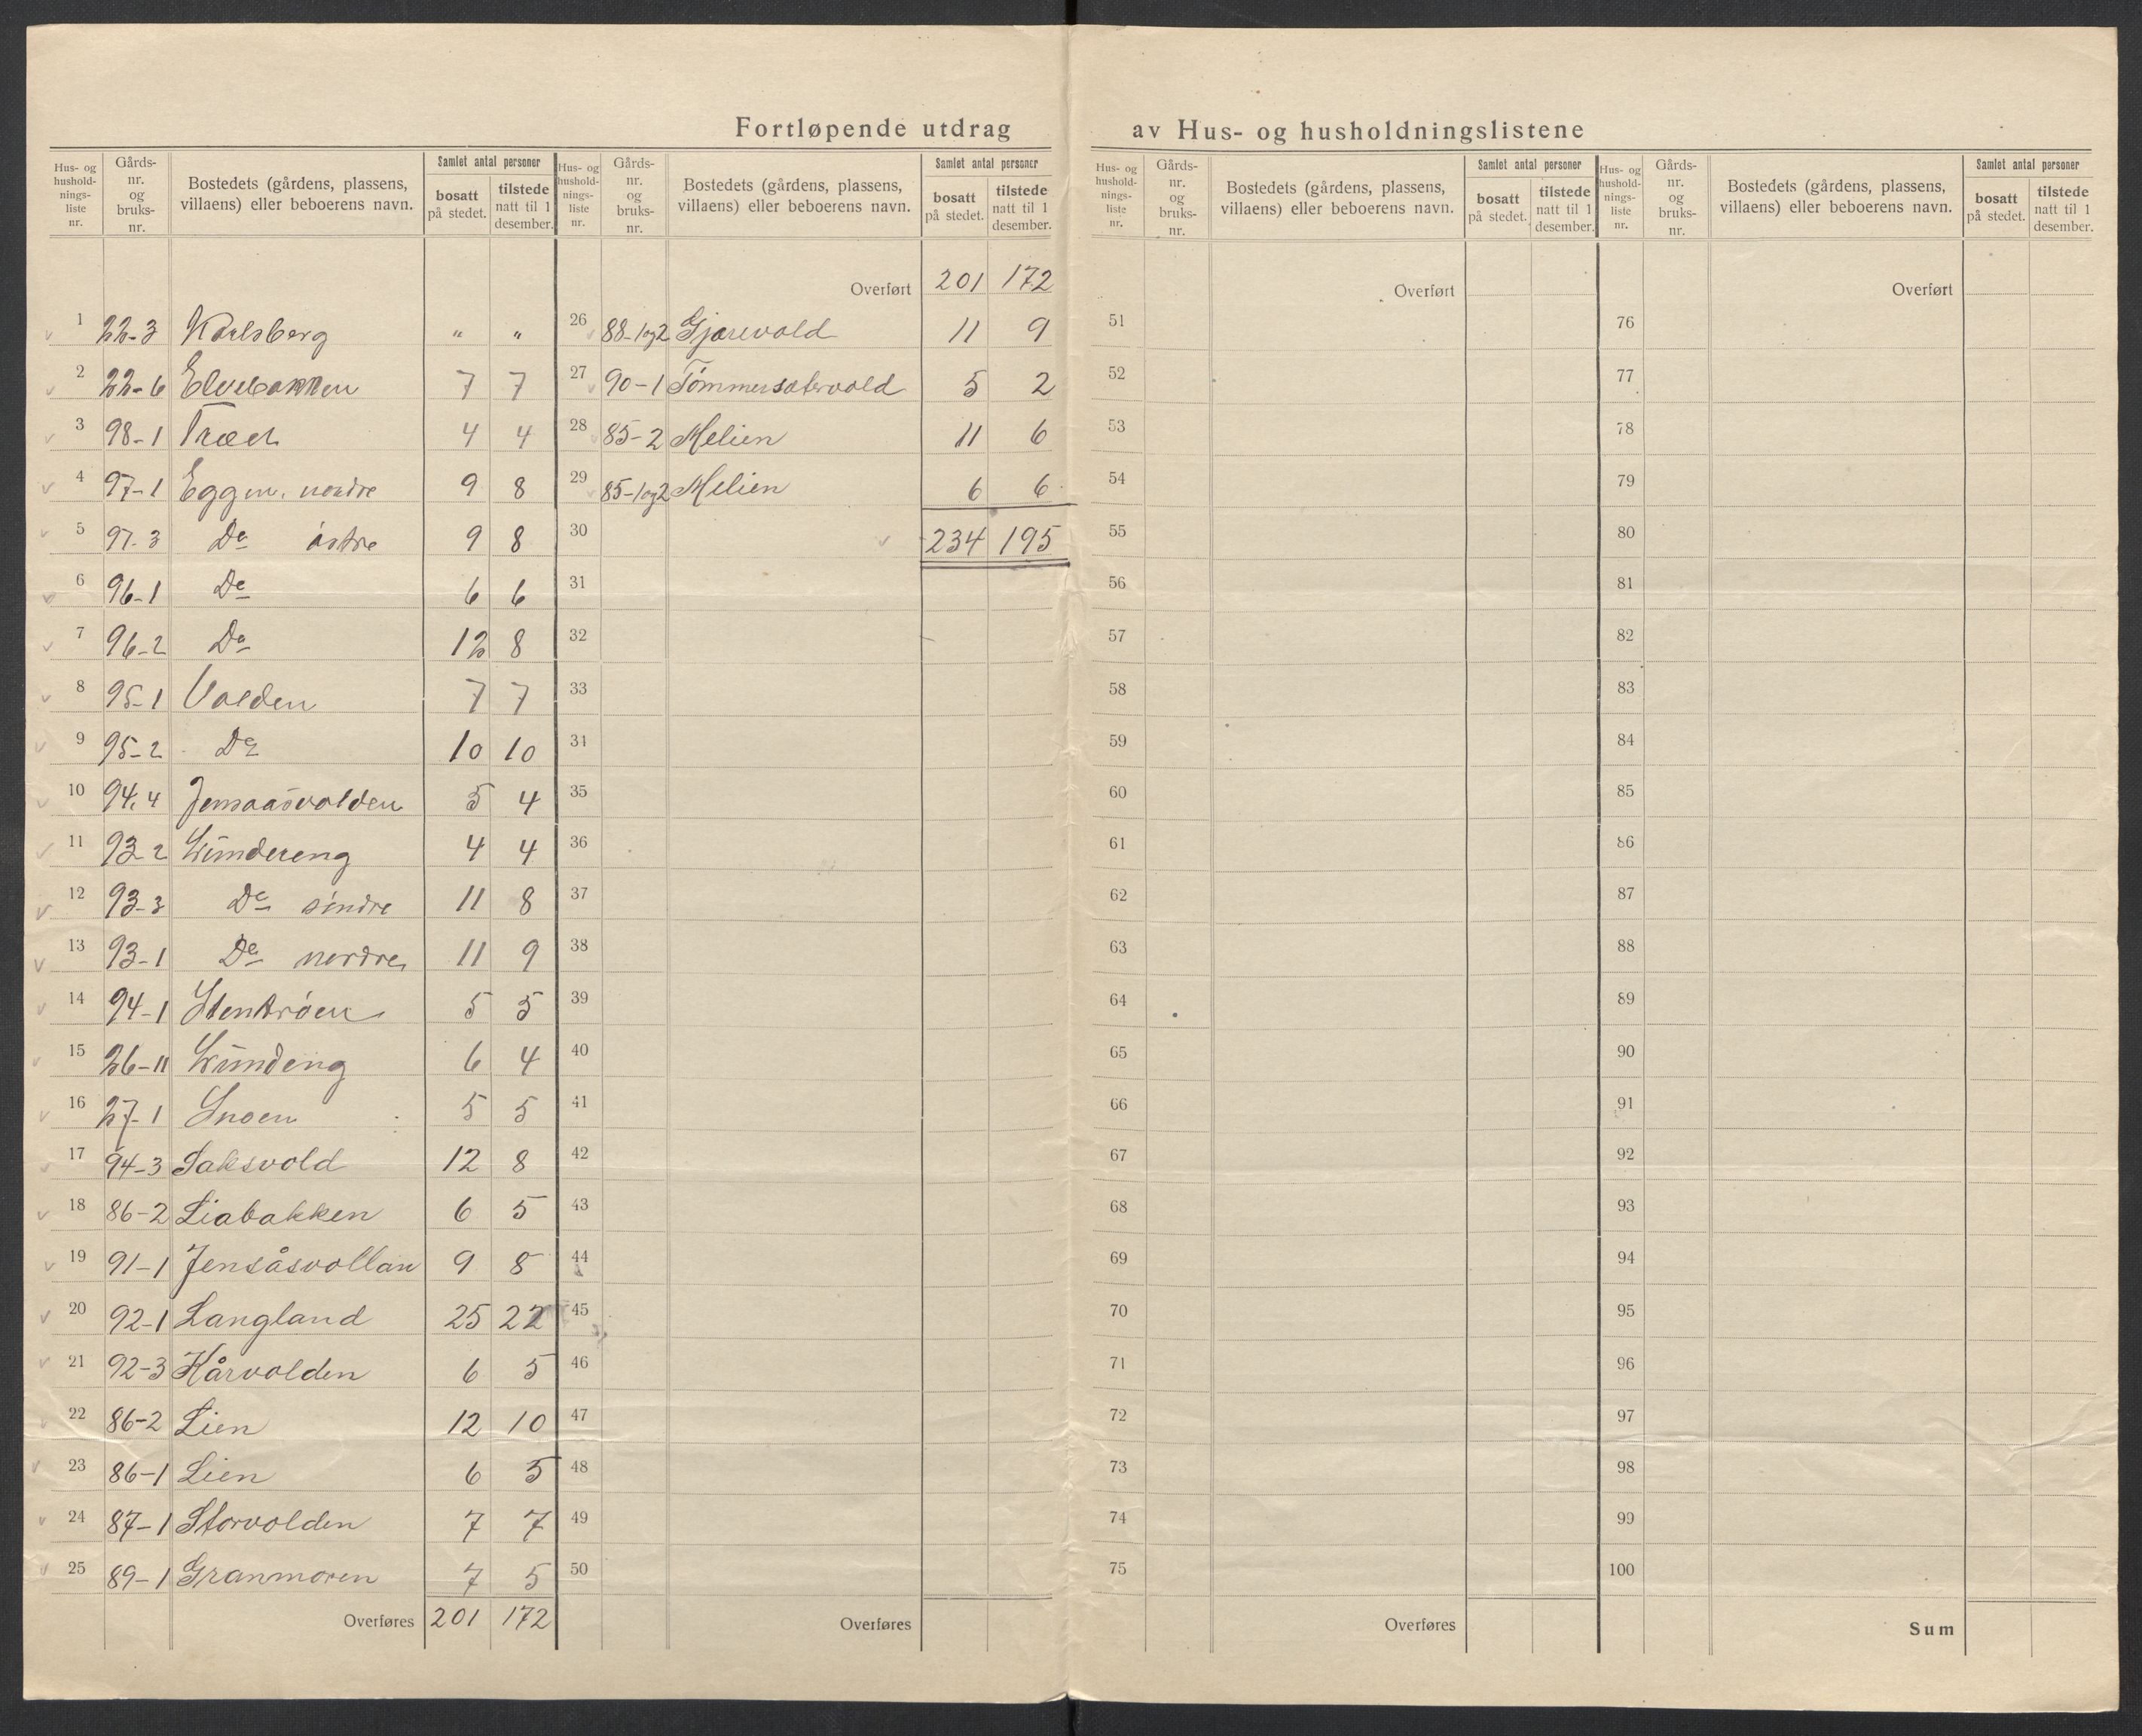 Fortløpende utdrag av Hus- og husholdningslistene
Hus- og hushold-nings-liste nr. | Gårds-nr. og bruks-nr. | Bostedets (gårdens, plassens, villaens) eller beboerens navn. | Samlet antal personer | bosatt på stedet. | tilstede natt til 1 desember.
1 22-3 Karlsberg " "
2 22-6 Elvebakken 7 7
3 98-1 Træet 4 4
4 97-1 Eggen, nordre 9 8
5 97.3 Do østre 9 8
6 96-1 Do 6 6
7 96-2 Do 12 8
8 95-1 Volden 7 7
9 95-2 Do 10 10
10 94,4 Jensaasvolden 5 4
11 93-2 Lundereng 4 4
12 93-3 Do søndre 11 8
13 93-1 Do nordre 11 9
14 94-1 Stentrøen 5 5
15 26-11 Lundeng 6 4
16 27-1 Snoen 5 5
17 94-3 Saksvold 12 8
18 86-2 Liabakken 6 5
19 91-1 Jensåsvollan 9 8
20 92-1 Langland 25 22
21 92-3 Kårvolden 6 5
22 86-2 Lien 12 10
23 86-1 Lien 6 5
24 87-1 Storvolden 7 7
25 89-1 Granmoren 7 5
Overføres 201 172
Hus- og hushold-nings-liste nr. | Gårds-nr. og bruks-nr. | Bostedets (gårdens, plassens, villaens) eller beboerens navn. | Samlet antal personer | bosatt på stedet. | tilstede natt til 1 desember.
Overført 201 172
26 88-1og2 Gjarevold 11 9
27 90-1 Tømmersætervold 5 2
28 85-2 Melien 11 6
29 85-1og2 Melien 6 6
30 234 195
31
32
33
31
35
36
37
38
39
40
41
42
43
44
45
46
47
48
49
50
Overføres
Hus- og hushold-nings-liste nr. | Gårds-nr. og bruks-nr. | Bostedets (gårdens, plassens, villaens) eller beboerens navn. | Samlet antal personer | bosatt på stedet. | tilstede natt til 1 desember.
Overført
51
52
53
54
55
56
57
58
59
60
61
62
63
64
65
66
67
68
69
70
71
72
73
74
75
Overføres
Hus- og hushold-nings-liste nr. | Gårds-nr. og bruks-nr. | Bostedets (gårdens, plassens, villaens) eller beboerens navn. | Samlet antal personer | bosatt på stedet. | tilstede natt til 1 desember.
Overført
76
77
78
79
80
81
82
83
84
85
86
87
88
89
90
91
92
93
94
95
96
97
98
99
100
Sum